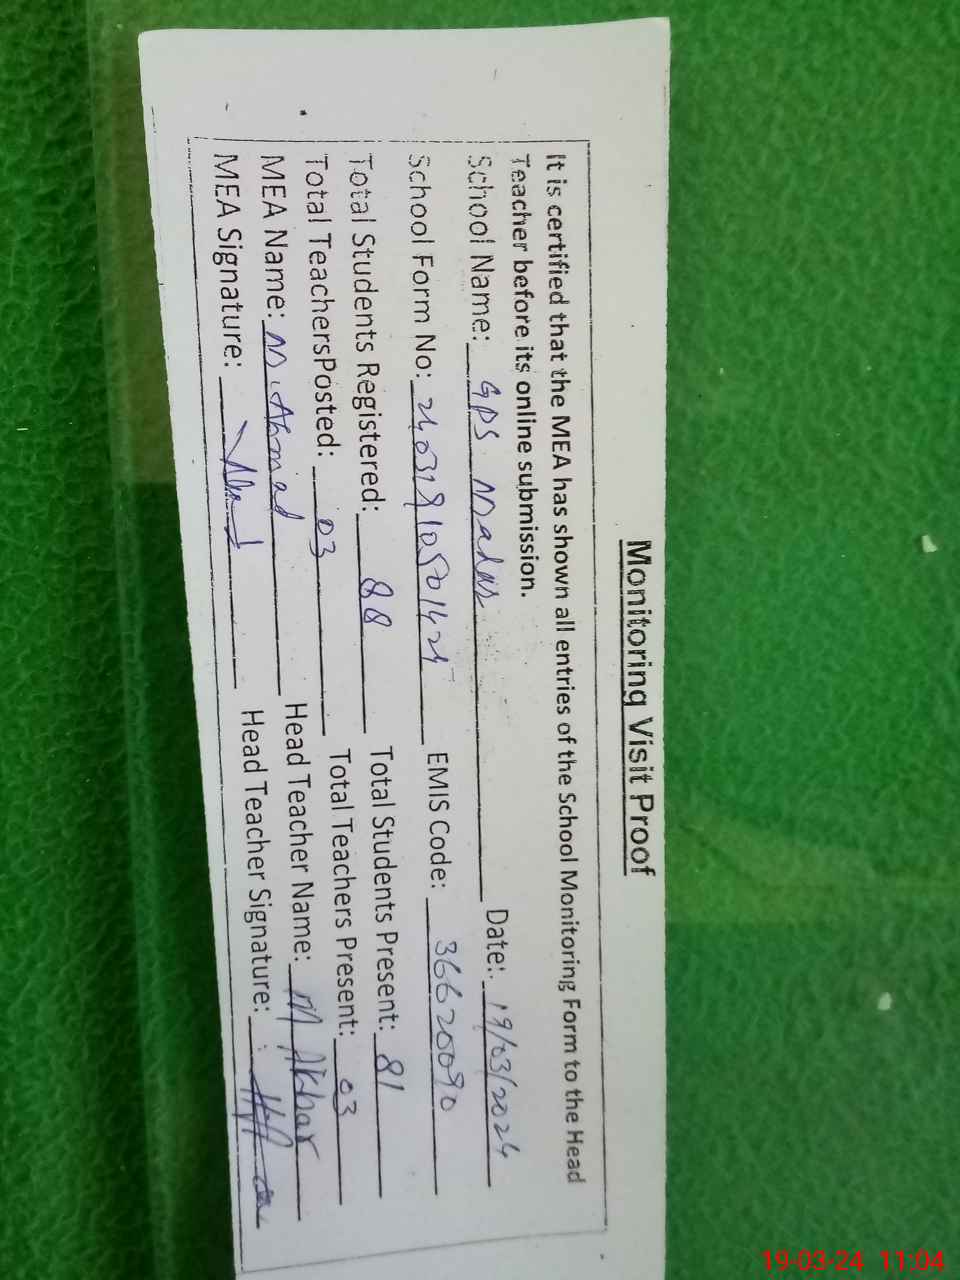 Monitoring Visit Proof
It is certified that the MEA has shown all entries of the School Monitoring Form to the Head
Teacher before its online submission.
School Name: GPS Date:. 19/03/2024
School Form No: EMIS Code: 36620090
Total Students Registered: 88 Total Students Present: 81
Total TeachersPosted: 03 Total Teachers Present: 03
MEA Name: M. Ahmad Head Teacher Name: M Akbar
MEA Signature: Head Teacher Signature:
19-03-24 11:04